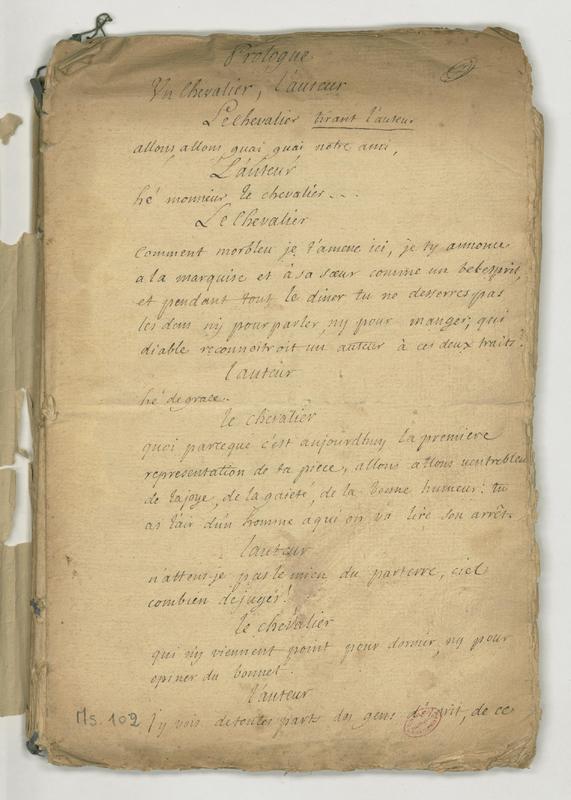 Prologue
Un Chevalier, l'auteur
Le chevalier tirant l'auteur
allons allons quai quai notre ami,
L'auteur
hé monsieur le chevalier...
Le Chevalier
Comment morbleu je t'amene ici, je t'y annonce
a la marquise et à sa sœur comme un bel esprit,
et pendant tout le diner tu ne desserres pas
les dens ny pour parler, ny pour manger; qui
diable reconnoitroit un auteur à ces deux traits?
l'auteur
hé de grace.
le chevalier
quoi parceque c'est aujourdhuy la premiere
representation de ta piece, allons allons ventrebleu
de la joye, de la gaieté, de la bonne humeur: tu
as l'air d'un homme a qui on va lire son arrêt.
l'auteur
n'attens-je pas le mien du parterre, ciel
combien de juges!
le chevalier
qui n'y viennent point pour dormir, ny pour
opiner du bonnet.
l'auteur
j'y vois de toutes parts des gens d'esprit, de ce
Ms. 102